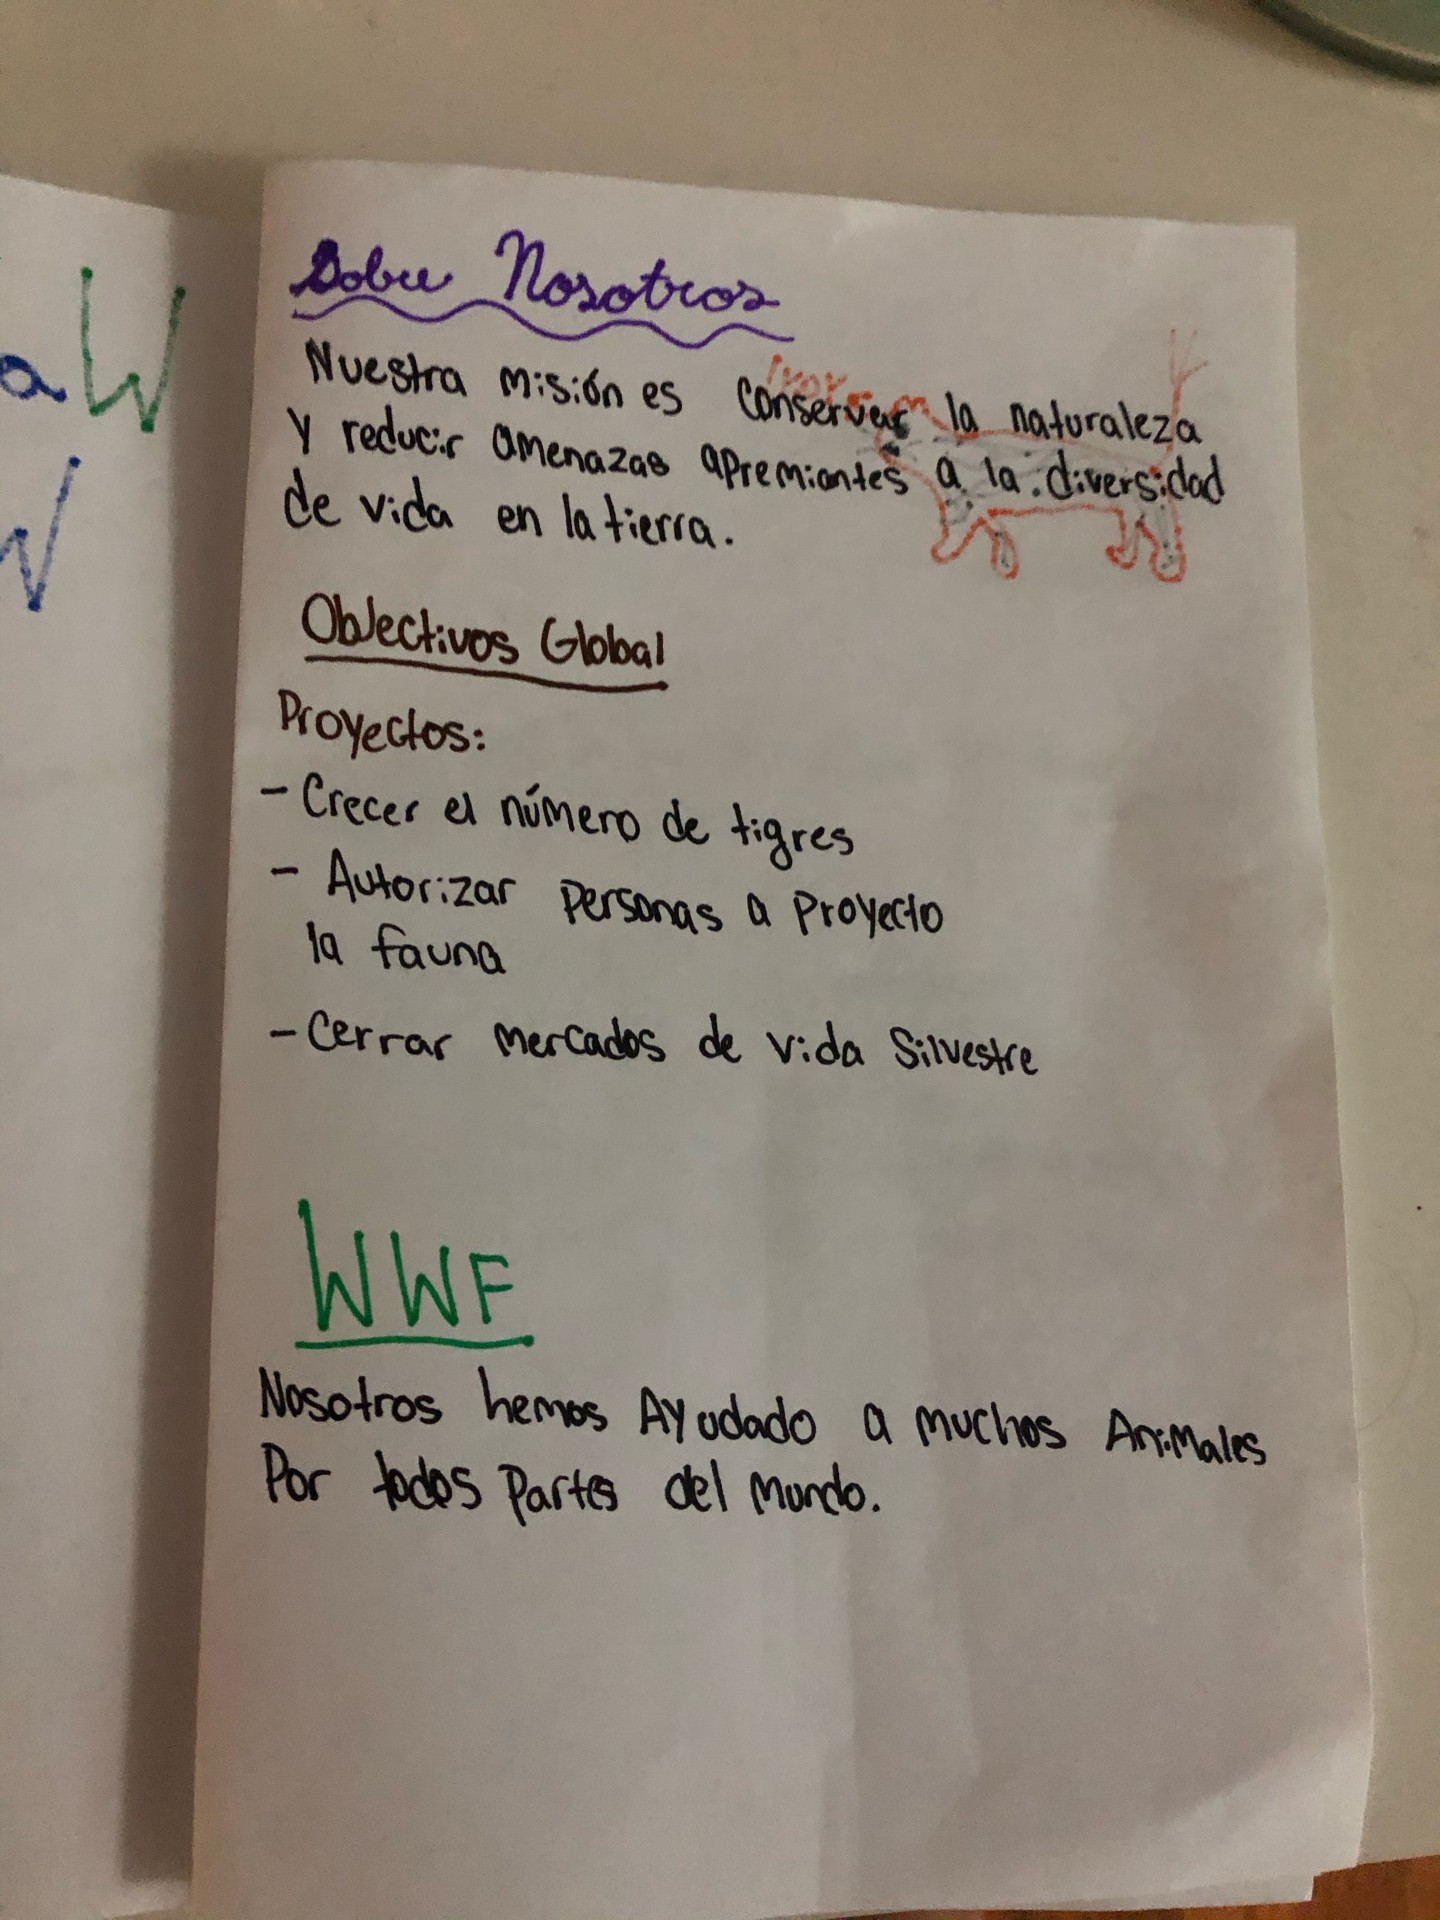 a W
W
Sobre Nosotros
Nuestra misión es conservar la naturaleza
y reducir amenazas apremiantes a la diversidad
de vida en la tierra.
Objectivos Global
Proyectos:
- Crecer el número de tigres
- Autorizar personas a proyecto
la fauna
- Cerrar mercados de vida silvestre
WWF
Nosotros hemos Ayudado a muchos Animales
Por todos partes del mundo.